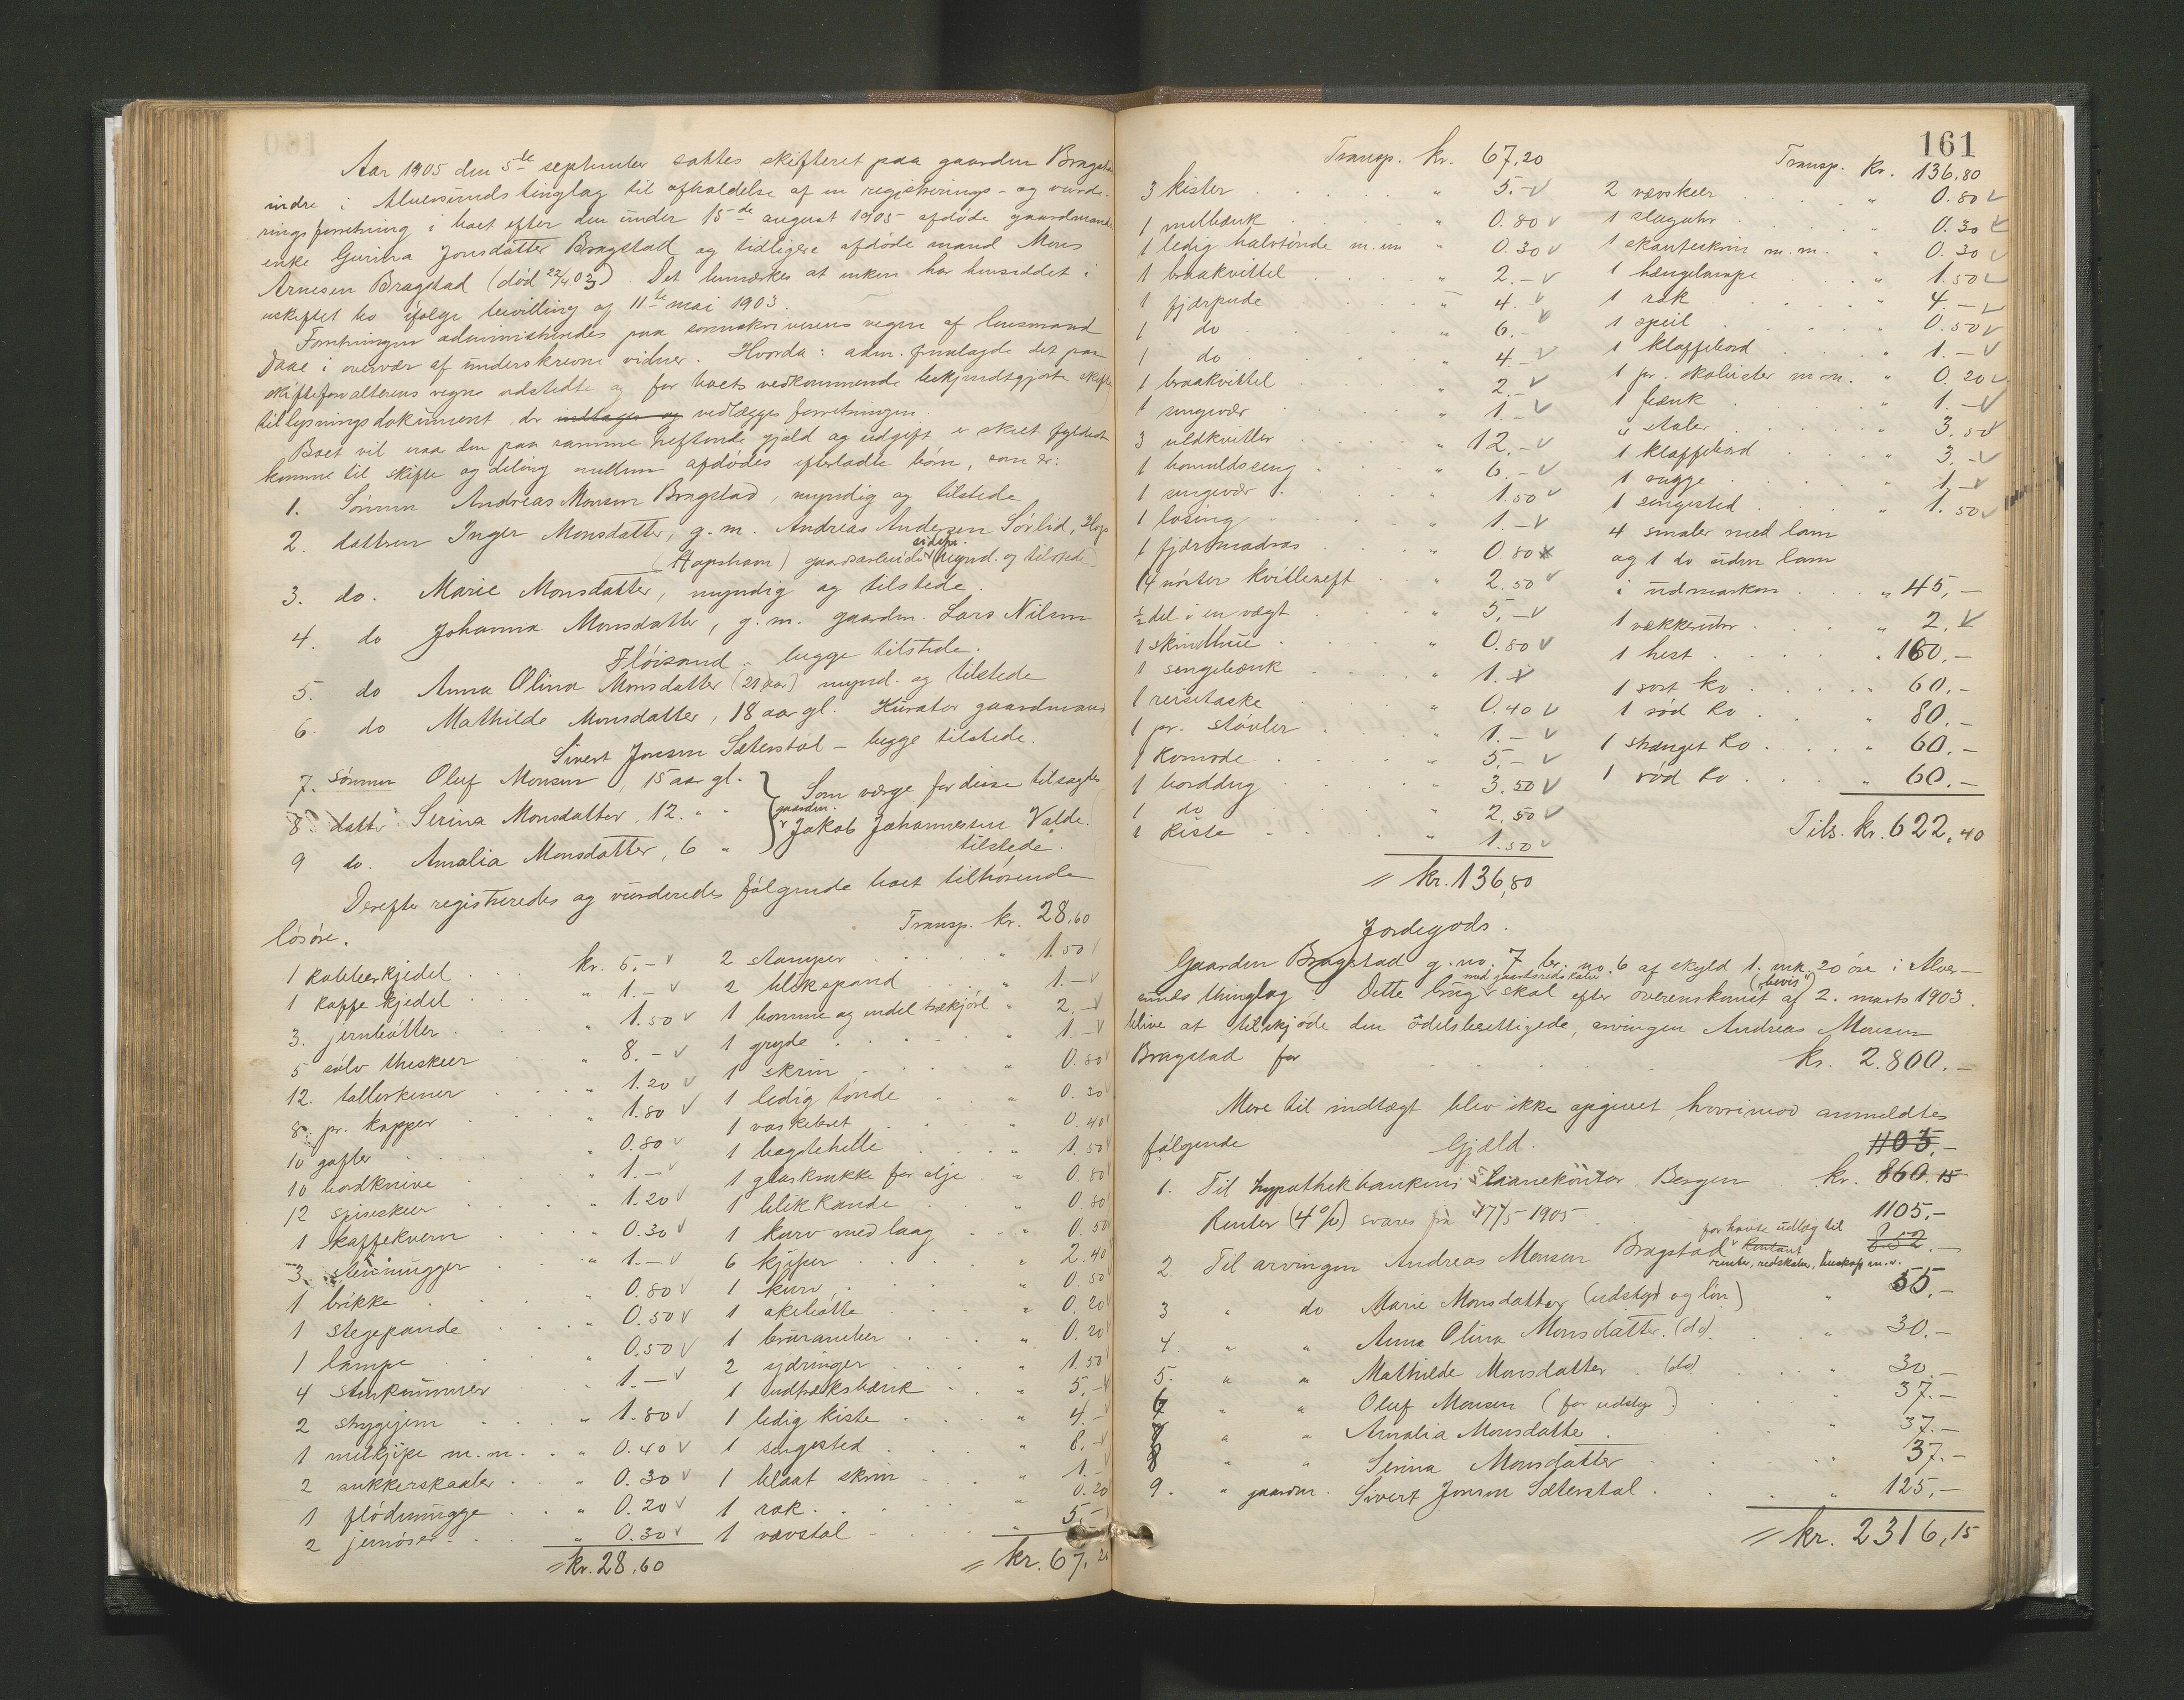 Aar 1905 den 5te september sattes skifteret paa gaarden Bragstad
indre i Alversunds tinglag til afholdelse af en registrerings- og vurde-
ringsforretning i boet efter den under 15de august 1905 afdøde gaardmands
enke Gurina Jonsdatter Bragstad og tidligere afdøde mand Mons
Arnesen Bragstad (død 22/4 03). Det bemærkes at enken har hensiddet i
uskiftet bo ifølge bevilling af 11te mai 1903.
Forretningen administreredes paa sorenskriverens vegne af lensmand
Daae i overvær af underskrevne vidner. Hvorda: adm. fremlagde det paa
skifteforvalterens vegne udstedte og for boets vedkommende bekjendtgjorte skifte
tillysningsdokument, der indtages og vedlægges forretningen.
Boet vil naa den paa samme heftende gjæld og udgift er skeet fyldest
komme til skifte og deling mellem afdødes efterladte børn, som er:
1. Sønnen Andreas Monsen Bragstad, myndig og tilstede
2. dattren Inger Monsdatter, g. m. Andreas Andersen Sørlid,
(Hopsham) gaardarbeider sidste. (mynd. og tilstede)
3. do. Marie Monsdatter, myndig og tilstede.
4. do Johanna Monsdatter, g. m. gaardm. Lars Nilsen
Fløisand - begge tilstede.
5. do Anna Olina Monsdatter (21 aar) mynd. og tilstede
6. do Mathilde Monsdatter, 18 aar gl. Kurator gaardmand
Sivert Jonsen Sæterstøl - begge tilstede.
7. sønnen Oluf Monsen, 15 aar gl.
8. datter Serina Monsdatter, 12. " "
9 do. Amalia Monsdatter, 6 "
Som værge for disse tilsagdes
gaardm. Jakob Johannesen Valde.
tilstede.
Derefter registreredes og vurderedes følgende boet tilhørende
løsøre.
1 kobberkjedel kr. 5.-
1 kaffekjedel " 1.-
3. jernbøtter " 1.50
5 sølv theskeer " 8.-
12. tallerkener " 1.20
8. pr. kopper " 1.80
10 gafler " 0.80
10 bordknive " 1.-
12 spiseskeer " 1.20
1 kaffekvern " 0.30
3. stenmugger " 1.-
1 brikke " 0.80
1 stegepande " 0.50
1 lampe " 0.50
4 stenkummer " 1.-
2 strygejern " 1.80
1 melkjipe m. m. " 0.40
2 sukkerskaaler " 0.30
1 flødemugge " 0.20
2 jernøser " 0.30
= kr. 28,60
Transp. kr. 28.60
2 stamper " 1.50
2 blikspand " 1.-
1 bomme og endel trækjørl " 2.-
1 gryde " 1.-
1 skrin " 0.80
1 ledig tønde " 0.30
1 vaskebret " 0.40
1 bagstehelle " 1.50
1 glaskrukke for olje " 0.80
1 blikkande " 0.80
1 kurv med laag " 0.50
6 kjiper " 2.40
1 kurv " 0.50
1 økebøtte " 0.20
1 bruranber " 0.20
2 sjdringer " 1.50
1 udtræksbænk " 5.-
1 ledig kiste " 4.-
1 sengested " 8.-
1 blaat skrin " 1.-
1 rok " 0.20
1 vævstol " 5.-
= kr. 67,20
161
Transp. kr. 67,20
3 kister " 5.-
1 melbænk " 0.80
1 ledig halvtønde m. m " 0.30
1 braakvittel " 2.-
1 fjærpude " 4.-
1 do " 6.-
1 do " 4.-
1 braakvittel " 2.-
1 sengevær " 1.-
3 uldkvitler " 12.-
1 bomuldsseng " 6.-
1 sengevær " 1.50
1 losing " 1.-
1 fjærmadras " 0.80
14 mörter kvitleveft " 2.50
1/2 del i en vægt " 5.-
1 skindhue " 0.80
1 sengebænk " 1.-
1 reisetaske " 0.40
1 pr. støvler " 1.-
1 komode " 5.-
1 borddug " 3.50
1 do " 2.50
1 kiste " 1.50
= kr. 136,80
Transp. kr. 136,80
2 vævskeer " 0.80
1 slaguhr " 0.30
1 skauteskrin m. m. " 0.30
1 hængelampe " 1.50
1 rok " 4.-
1 speil " 0.50
1 klaffebord " 1.-
1 pr. skolister m. m. " 0.20
1 bænk " 1.-
4 stoler " 3.50
1 klaffebord " 3.-
1 vugge " 1.-
1 sengested " 1.50
4 smaler med lam
og 1 do uden lam
i udmarken " 45,-
1 vækkeruhr " 2.-
1 hest " 160.-
1 sort ko " 60.-
1 rød ko " 80.-
1 stranget ko " 60.-
1 rød ko " 60.-
Tils. kr. 622,40
Jordegods.
Gaarden Bragstad g. no. 7 br. no. 6 af skyld 1. mk. 20 øre i Alver-
sunds thinglag. Dette brug med gaardsredskaber skal efter overenskomst ("bevis") af 2. marts 1903.
blive at tilskjøde den odelsberettigede, arvingen Andreas Monsen
Bragstad for kr. 2.800.-
Mere til indtægt blev ikke opgivet, hvorimod anmeldtes
følgende Gjæld.
1105.-
1. Til hypothekbankens laanekontor Bergen kr. 860.15
Renter (4%) svares fra 17/5 1905
1105.-
2. Til arvingen Andreas Monsen Bragstad for havte udlæg til kontant renter, redskaber, huskøp m. v. 852.-
3 " do Marie Monsdatter (udstyr og løn) " 55.-
4. " " Anna Olina Monsdatter. (do). " 30.-
5. " " Mathilde Monsdatter (do) " 30.-
6 " " Oluf Monsen (for udstyr) " 37.-
7 " " Amalia Monsdatter " 37.-
8 " " Serina Monsdatter " 37.-
9. " gaardm. Sivert Jonsen Sæterstøl " 125.-
= kr. 2316,15